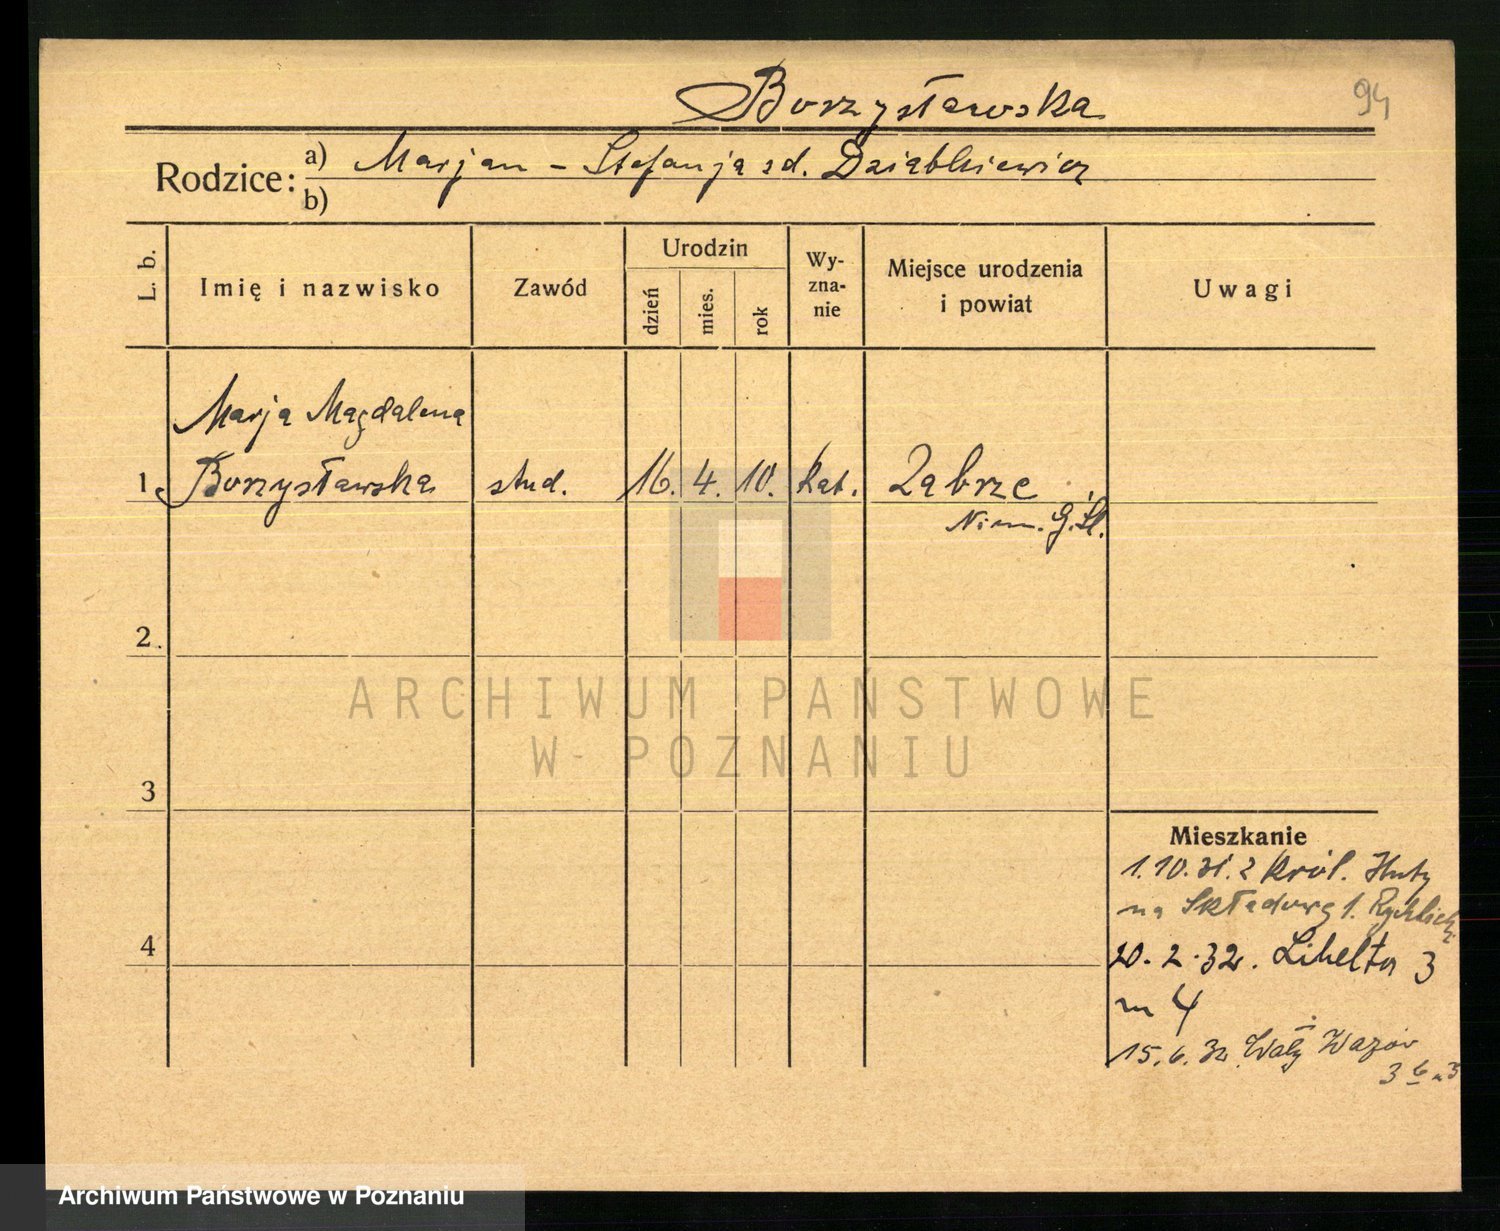 Borzysławska
94
Rodzice: a) Marjan - Stefanja zd. Dziabkiewicz
b)
L. b.
Imię i nazwisko
Zawód
Urodzin
dzień
mies.
rok
Wy-
zna-
nie
Miejsce urodzenia
i powiat
Uwagi
Marja Magdalena
1. Borzysławska stud. 16. 4. 10. kat. Zabrze
Niem. G. Śl.
2.
3
4
ARCHIWUM PAŃSTWOWE
W POZNANIU
Mieszkanie
1.10.31. z Król. Huty
na Składową 1.
20.2.32. Libelta 3
m 4
15.6.32. Wały Wazów
3
Archiwum Państwowe w Poznaniu